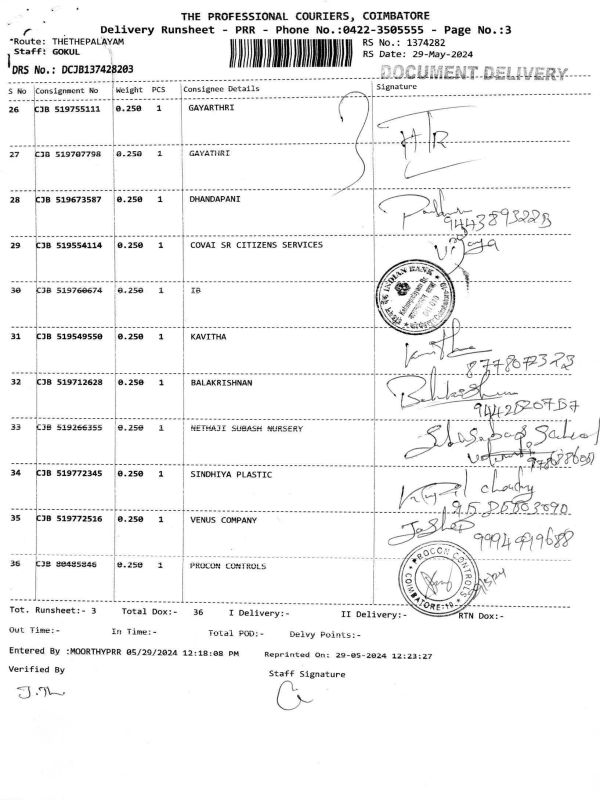 THE PROFESSIONAL COURIERS, COIMBATORE
Delivery Runsheet - PRR - Phone No.:0422-3505555 - Page No.:3
*Route: THETHEPALAYAM
Staff: GOKUL
RS No.: 1374282
RS Date: 29-May-2024
DRS No.: DCJB137428203
DOCUMENT DELIVERY
S No Consignment No Weight PCS Consignee Details Signature
26 CJB 519755111 0.250 1 GAYARTHRI
27 CJB 519707798 0.250 1 GAYATHRI
28 CJB 519673587 0.250 1 DHANDAPANI
29 CJB 519554114 0.250 1 COVAI SR CITIZENS SERVICES
30 CJB 519760674 0.250 1 IB
INDIAN BANK
31 CJB 519549550 0.250 1 KAVITHA
32 CJB 519712628 0.250 1 BALAKRISHNAN
33 CJB 519266355 0.250 1 NETHAJI SUBASH NURSERY
34 CJB 519772345 0.250 1 SINDHIYA PLASTIC
35 CJB 519772516 0.250 1 VENUS COMPANY
9994099688
36 CJB 80485846 0.250 1 PROCON CONTROLS
PROCON CONTROLS
COIMBATORE-19
Tot. Runsheet:- 3 Total Dox:- 36 I Delivery:- II Delivery:- RTN Dox:-
Out Time:- In Time:- Total POD:- Delvy Points:-
Entered By :MOORTHYPRR 05/29/2024 12:18:08 PM Reprinted On: 29-05-2024 12:23:27
Verified By
Staff Signature